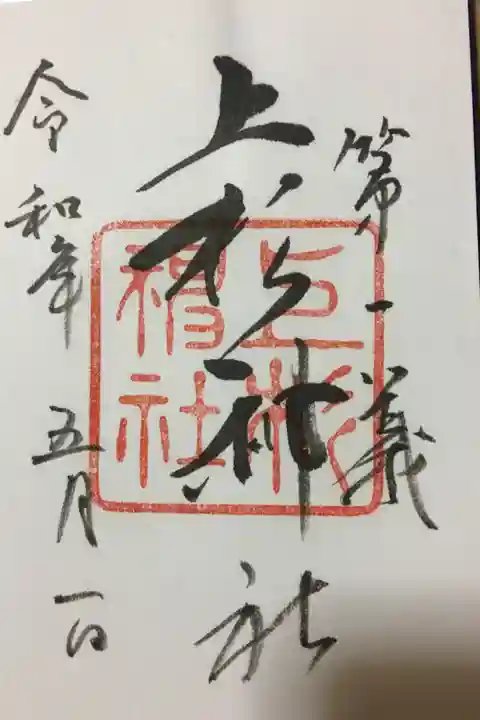 第一義
上杉神社
上杉神社
令和年五月一日